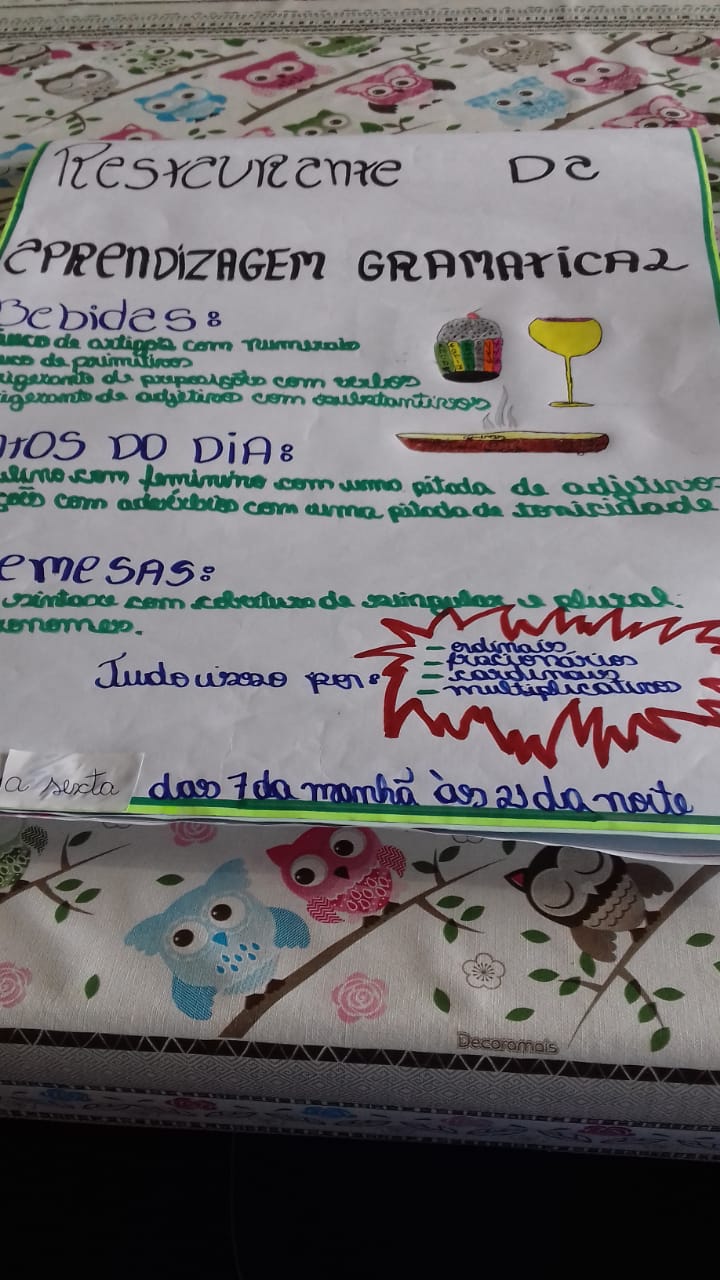 Restaurante Da
aprendizagem GRAMATICAL
Bebidas:
de artigos com numerais
de primitivos
rigerante de preposições com verbos
igerante de adjetivos com substantivos
tos DO DiA:
ulino com feminino com uma pitada de adjetivos
ções com advérbios com uma pitada de tonicidade
emesas:
sintaxe com cobertura de singular e plural.
onomes.
Tudo isso por:
- ordinais
- fracionários
- cardinais
- multiplicativos
a sexta das 7 da manhã às 21 da noite
Decoramais